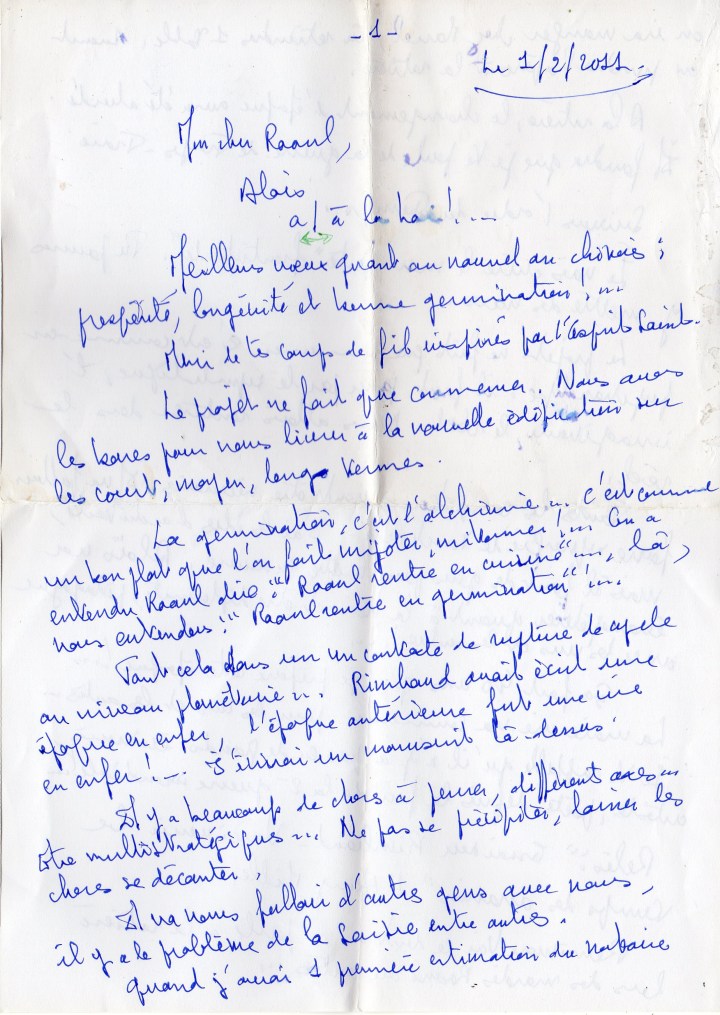 - 1 -
Le 1/2/2011.
Mon cher Raoul,
Alois
a / à la hai ! ...
Meilleurs vœux quant au nouvel an chinois ;
prospérité, longévité et bonne germination ! ...
Merci de tes coups de fil inspirés par l'esprit Saint.
Le projet ne fait que commencer. Nous avons
les bases pour nous livrer à la nouvelle édification sur
les court, moyen, long termes.
La germination, c'est l'alchimie ... c'est comme
un bon plat que l'on fait mijoter, mitonner ! ... On a
entendu Raoul dire : " Raoul rentre en cuisine " ..., là,
nous entendons : " Raoul rentre en germination " ! ...
Tout cela dans un un contexte de rupture de cycle
au niveau planétaire ... Rimbaud avait écrit une
époque en enfer, l'époque antérieure fut une
en enfer ! ... J'écrirai un manuscrit là-dessus.
Il y a beaucoup de choses à penser, différent axes ...
être multistratégiques ... Ne pas se précipiter, laisser les
choses se décanter.
Il va nous falloir d'autres gens avec nous,
il y a le problème de la Saisie entre autres.
quand j'aurai 1 première estimation du notaire